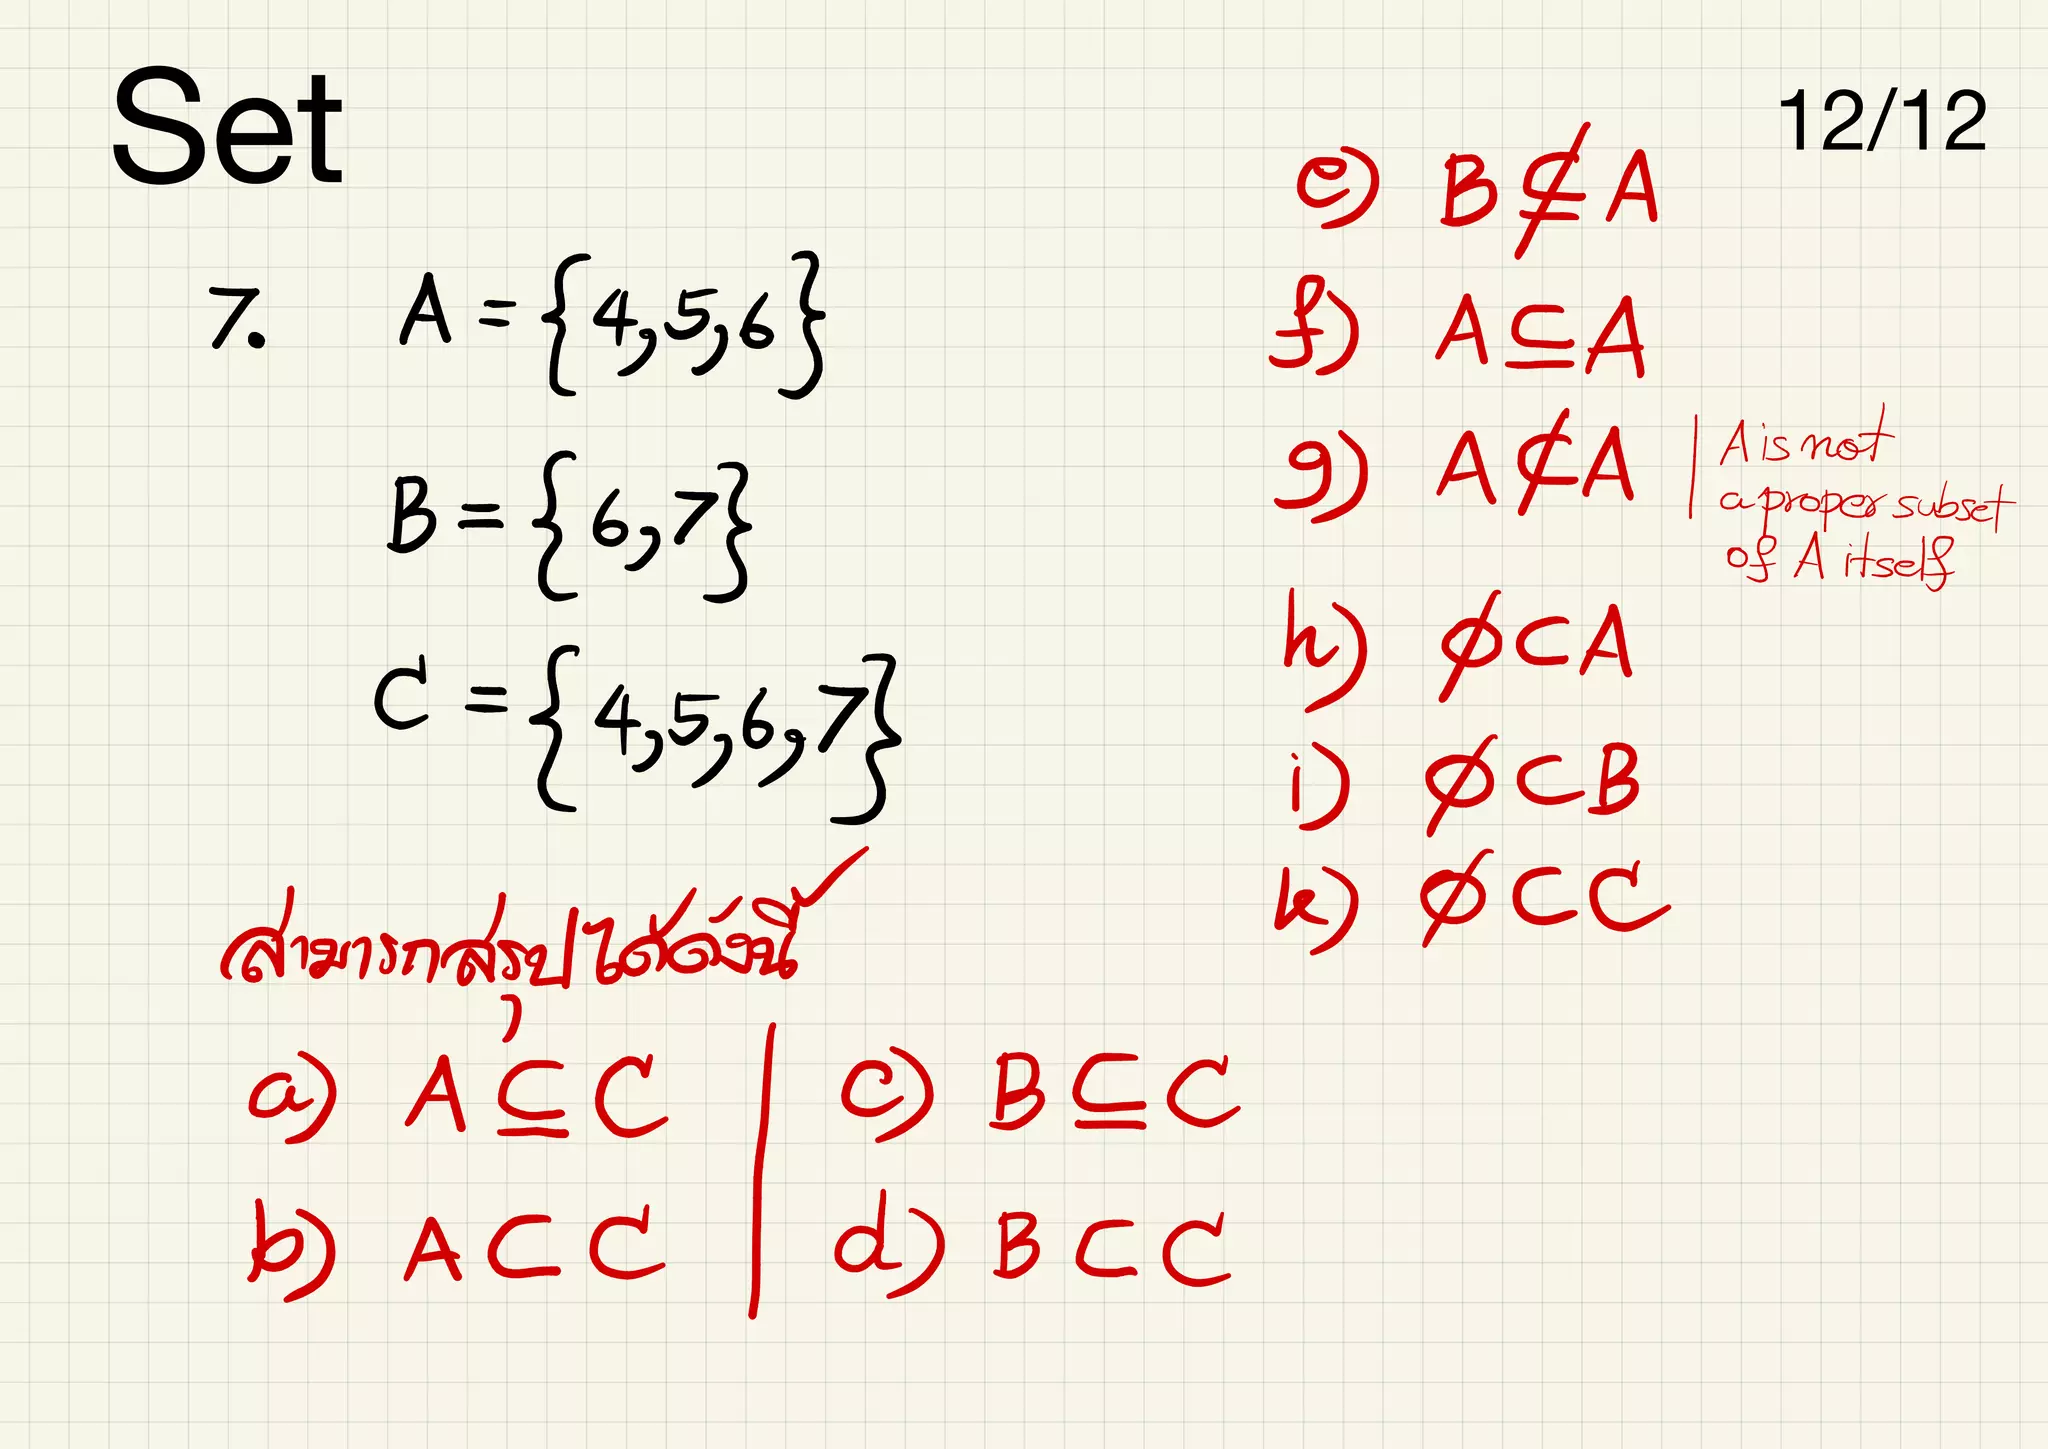 Set
12/12
7. A = {4,5,6}
B = {6,7}
C = {4,5,6,7}
สามารถสรุปได้ดังนี้
a) A ⊆ C
b) A ⊂ C
c) B ⊆ C
d) B ⊂ C
e) B ⊈ A
f) A ⊆ A
g) A ⊄ A
A is not
a proper subset
of A itself
h) ∅ ⊂ A
i) ∅ ⊂ B
k) ∅ ⊂ C